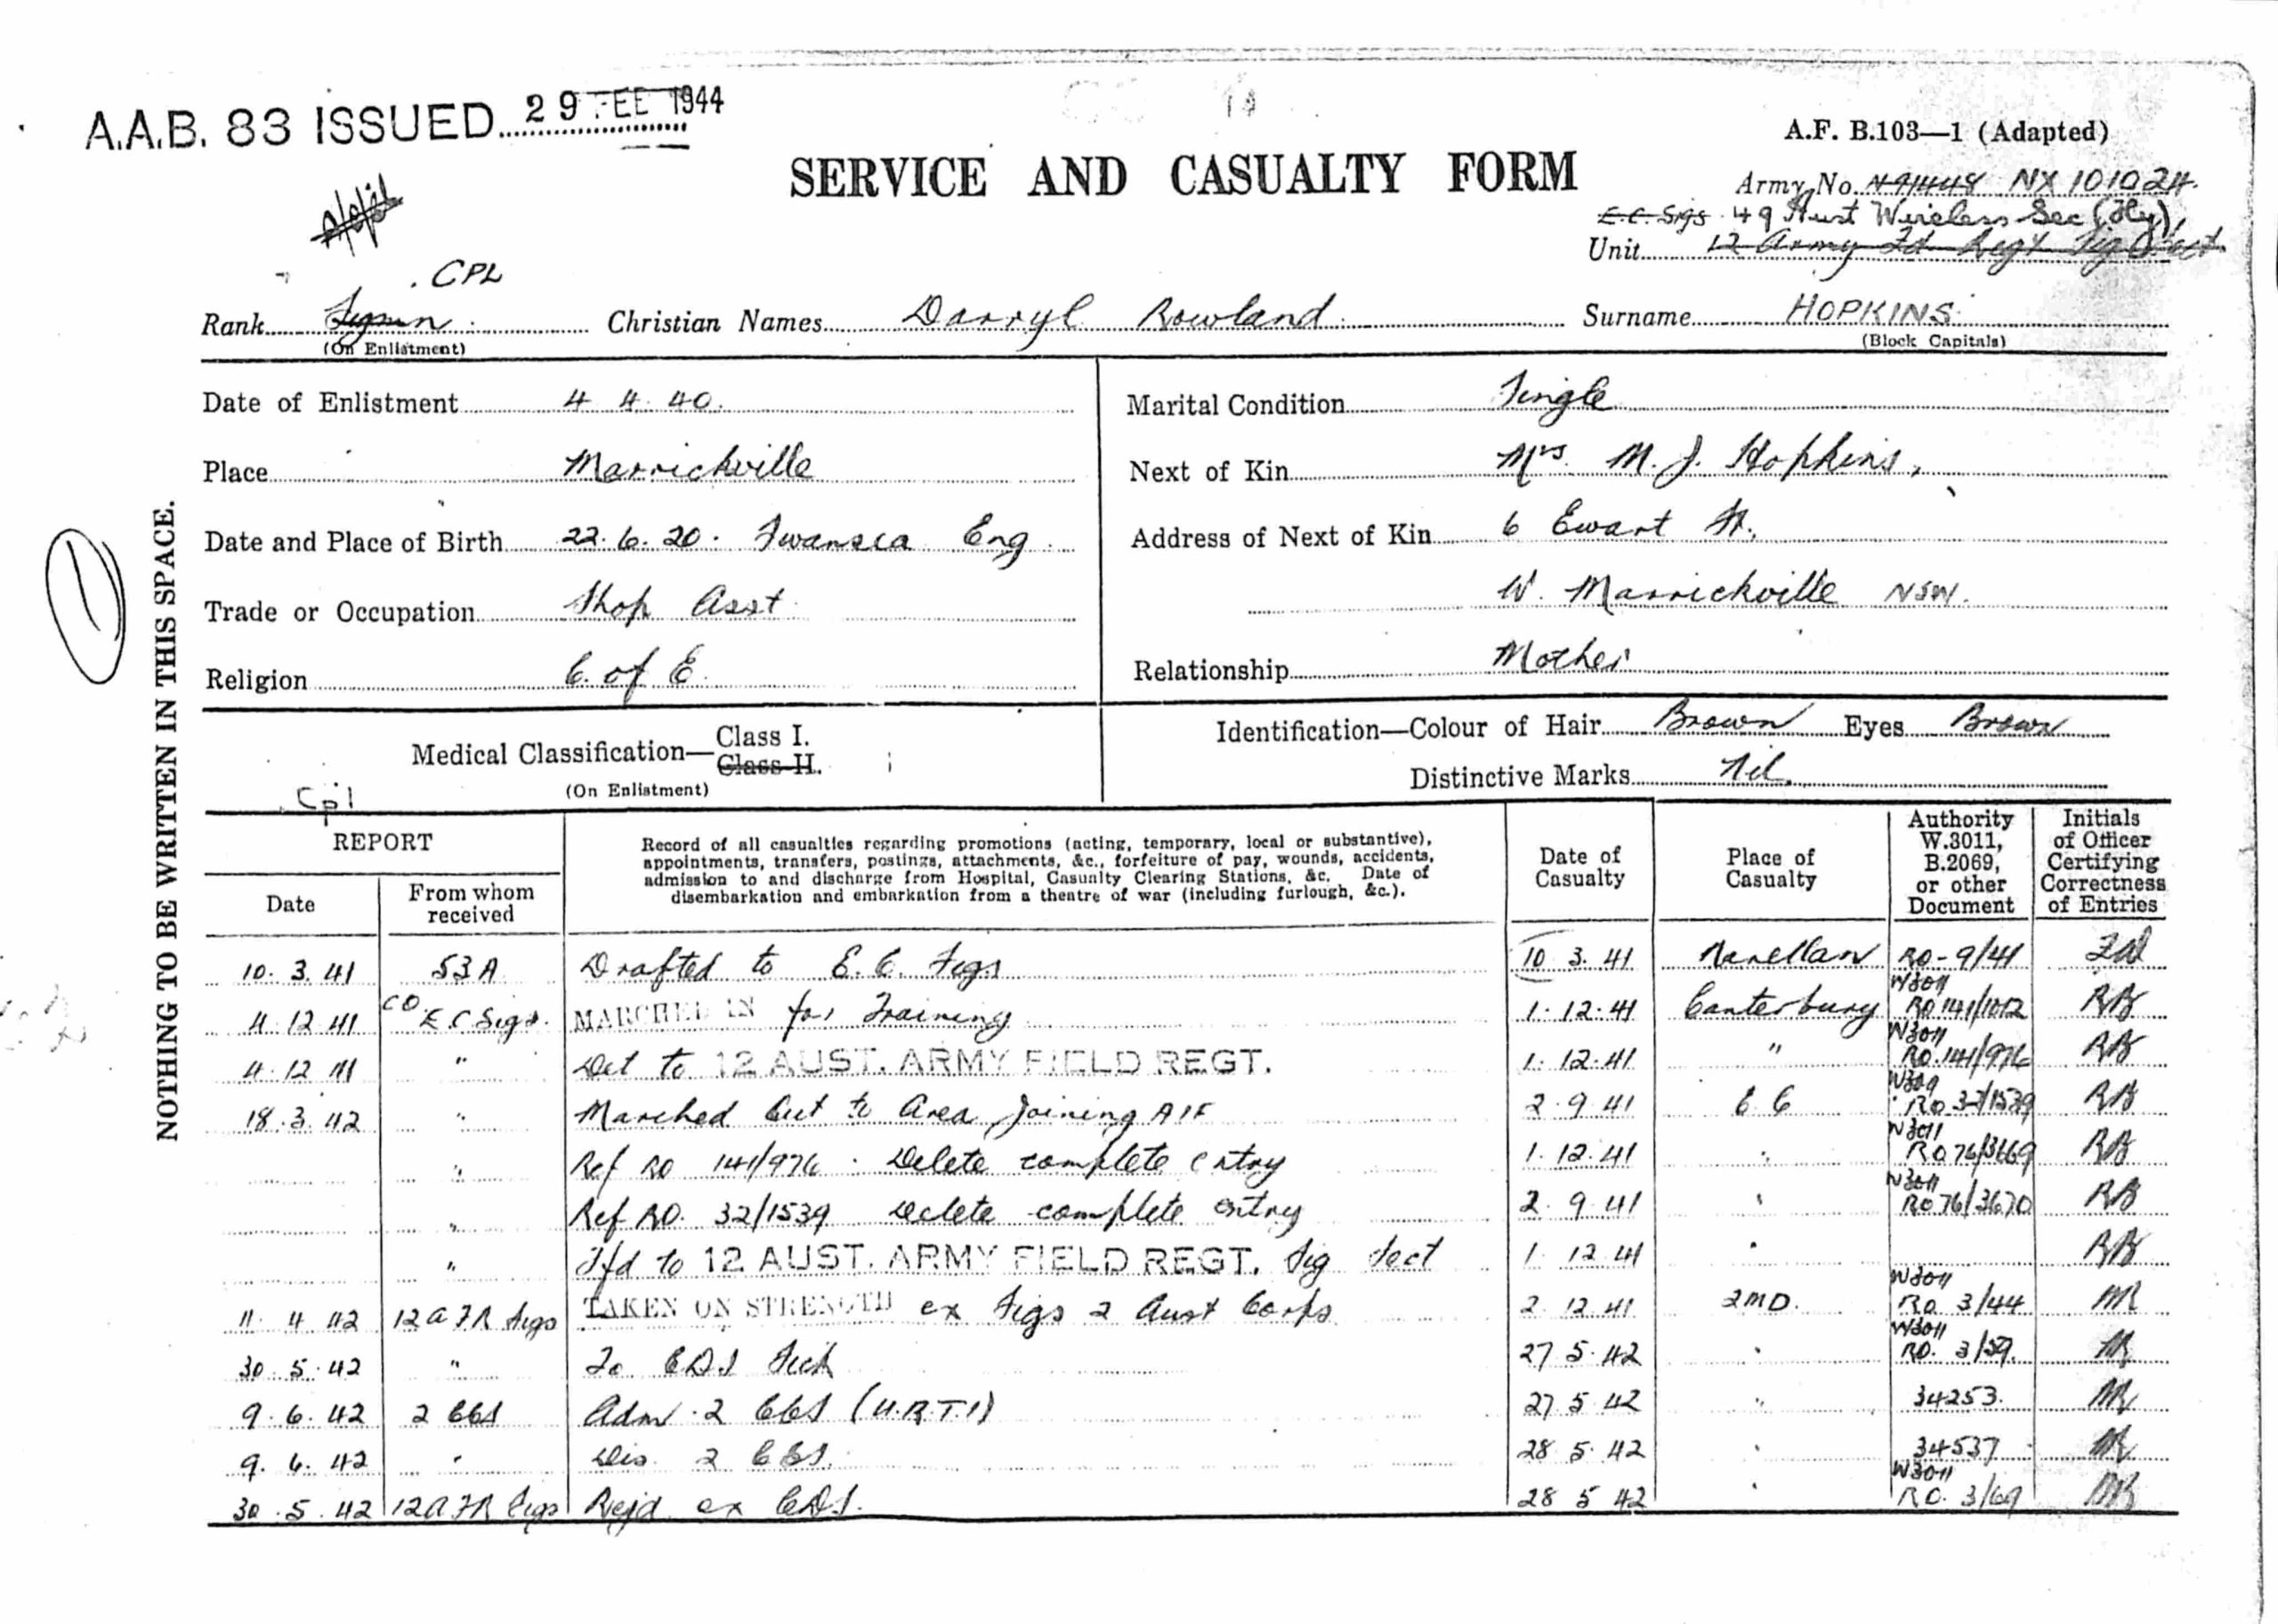 A.A.B. 83 ISSUED 29 FEB 1944
A.F. B.103—1 (Adapted)
SERVICE AND CASUALTY FORM
Army No. NX 101024
E.C. Sigs 49 Aust Wireless Sec (Hy),
Unit 12 Army Fd Regt Sig Sect
CPL
Rank Sigmn Christian Names Darryl Rowland Surname HOPKINS
(On Enlistment) (Block Capitals)
Date of Enlistment 4 4 40.
Place Marrickville
Date and Place of Birth 22.6.20. Swansea Eng.
Trade or Occupation Shop Asst
Religion C. of E.
Marital Condition Single
Next of Kin Mrs. M. J. Hopkins,
Address of Next of Kin 6 Ewart St,
W. Marrickville NSW.
Relationship Mother
Medical Classification— Class I.
Class II.
(On Enlistment)
Identification—Colour of Hair Brown Eyes Brown
Distinctive Marks Nil.
NOTHING TO BE WRITTEN IN THIS SPACE.
1
Cpl
REPORT
Date
From whom received
Record of all casualties regarding promotions (acting, temporary, local or substantive),
appointments, transfers, postings, attachments, &c., forfeiture of pay, wounds, accidents,
admission to and discharge from Hospital, Casualty Clearing Stations, &c. Date of
disembarkation and embarkation from a theatre of war (including furlough, &c.).
Date of Casualty
Place of Casualty
Authority W.3011, B.2069, or other Document
Initials of Officer Certifying Correctness of Entries
10. 3. 41 53A Drafted to E.C. Sigs 10 3. 41 Narellan RO-9/41
4 12 41 CO E C Sigs. MARCHED IN for Training 1. 12. 41 Canterbury W3011 RO 141/1012 RB
4 12 41 " Det to 12 AUST. ARMY FIELD REGT. 1. 12. 41 " W3011 RO. 141/976 RB
18. 3. 42 " Marched Out to Area Joining AIF 2 9 41 E C W3011 RO 32/1539 RB
" Ref RO 141/976. Delete complete entry 1. 12. 41 " W3011 RO 76/3669 RB
" Ref RO. 32/1539 Delete complete entry 2. 9 41 " W3011 RO 76/3670 RB
" Tfd to 12 AUST. ARMY FIELD REGT. Sig Sect 1. 12 41 " RB
11. 4 42 12 A F R Sigs TAKEN ON STRENGTH ex Sigs 2 Aust Corps 2 12 41 2MD. W3011 RO 3/44
30. 5. 42 " To CDS Sick 27 5. 42 " W3011 RO. 3/59.
9. 6. 42 2 CCS Adm. 2 CCS (U.R.T.I) 27 5 42 " 34253.
9. 6. 42 " Dis. 2 CCS. 28 5 42 " 34537
30. 5. 42 12 A F R Sigs Rejd ex CDS. 28 5 42 " W3011 RO. 3/69